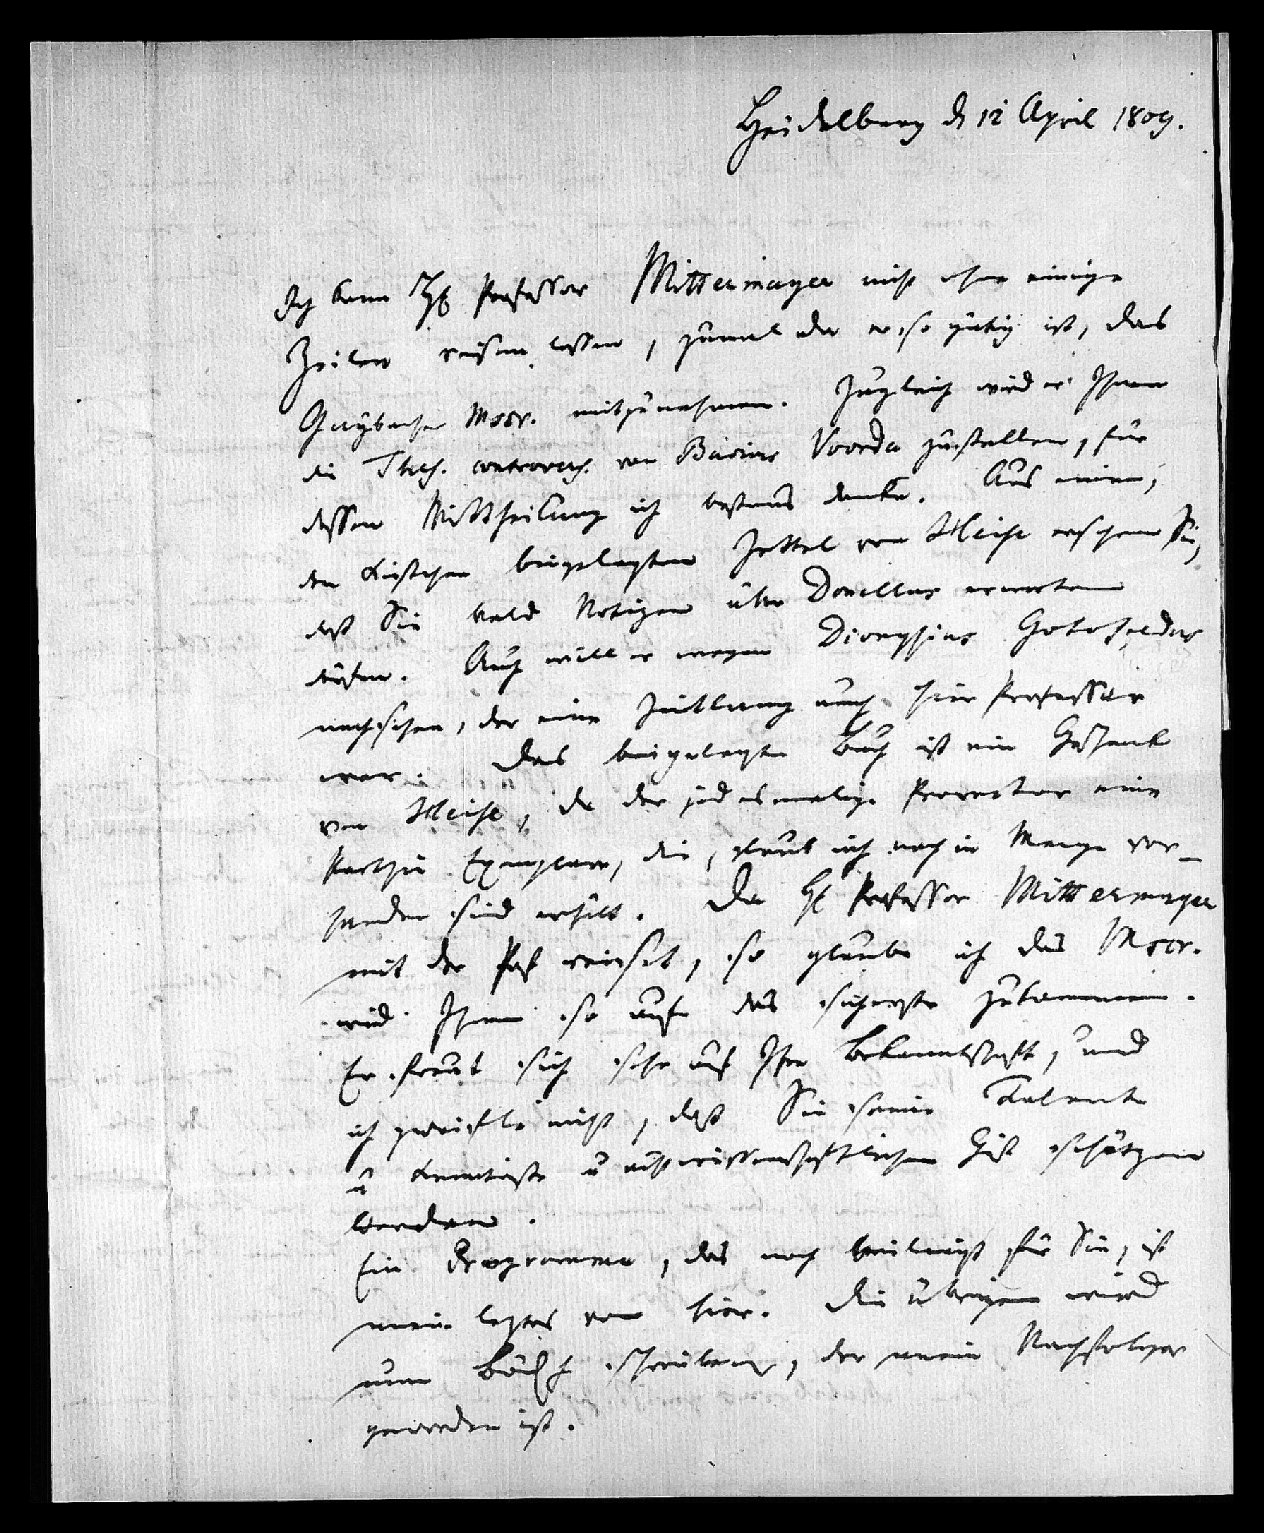 Heidelberg d 12 April 1809.
Ich kann H Professor Mittermayer nicht ohne einige
Zeilen reisen lassen, zumal da er so gütig ist, das
Mscr. mitzunehmen. Zugleich wird er Ihnen
die Thes. controvers. von Voorda zustellen, für
dessen Mittheilung ich bestens danke. Aus einem,
den beigelegten Zettel von Heise ersehen Sie,
daß Sie bald Notizen über Donellus erwarten
dürfen. Auch will er wegen Dionysius Gotofredus
nachsehen, der eine Zeitlang auch hier Professor
war. Das beigelegte Buch ist ein Geschenk
von Heise, da der jedesmalige Prorector eine
Parthie Exemplare, die, glaub ich noch in Menge vor-
handen sind erhält. Da H Professor Mittermayer
mit der Post reiset, so glaube ich das Mscr.
wird Ihnen so aufs sicherste zukommen.
Er freut sich sehr auf Ihre Bekanntschaft, und
ich zweifle nicht, daß Sie seine Talente
u Kenntniße u wissenschaftlichen schätzen
werden.
Ein Programma, das noch beiliegt für Sie, ist
mein leztes von hier. Die übrigen wird
nun Böckh schreiben, der mein Nachfolger
geworden ist.